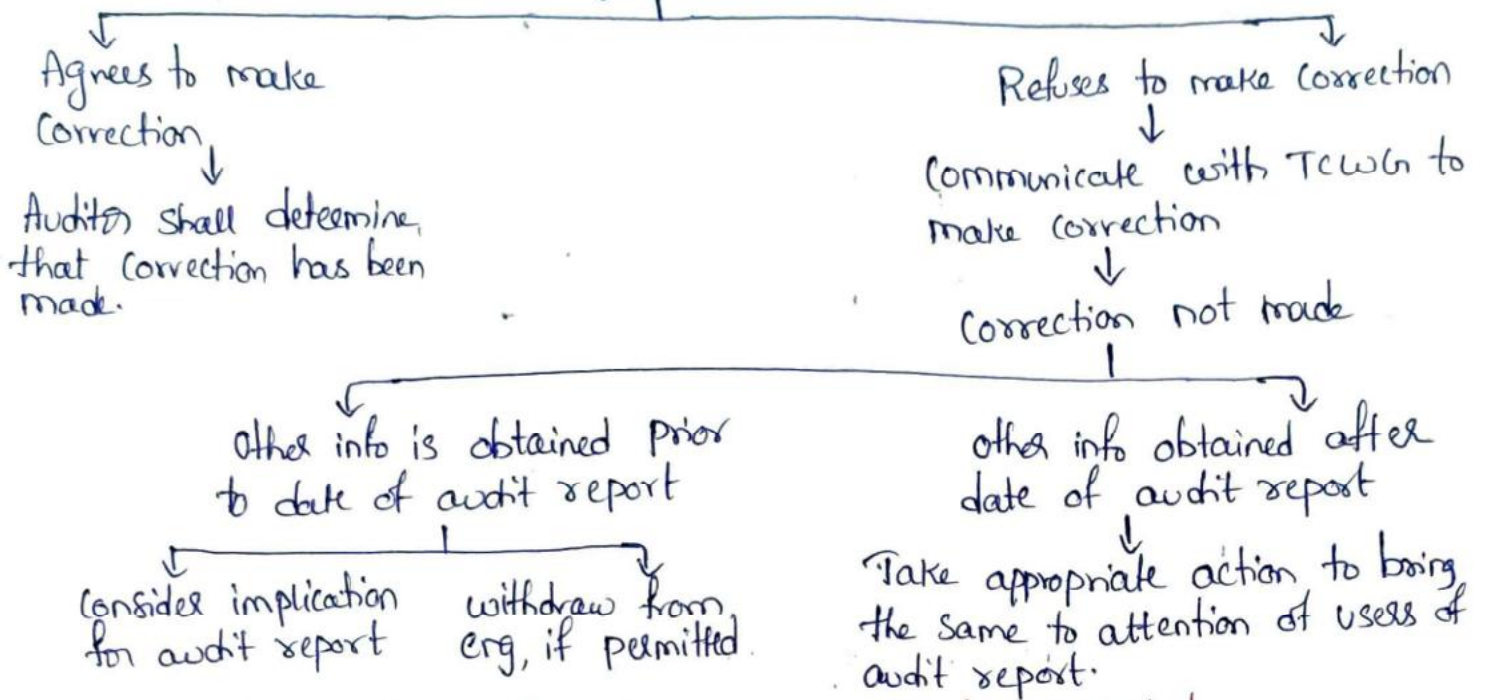 Agrees to make
Correction
Auditor shall determine
that correction has been
made.
Refuses to make correction
Communicate with TCWG to
make correction
Correction not made
Other info is obtained prior
to date of audit report
Consider implication
for audit report
withdraw from
erg, if permitted.
other info obtained after
date of audit report
Take appropriate action to bring
the same to attention of users of
audit report.